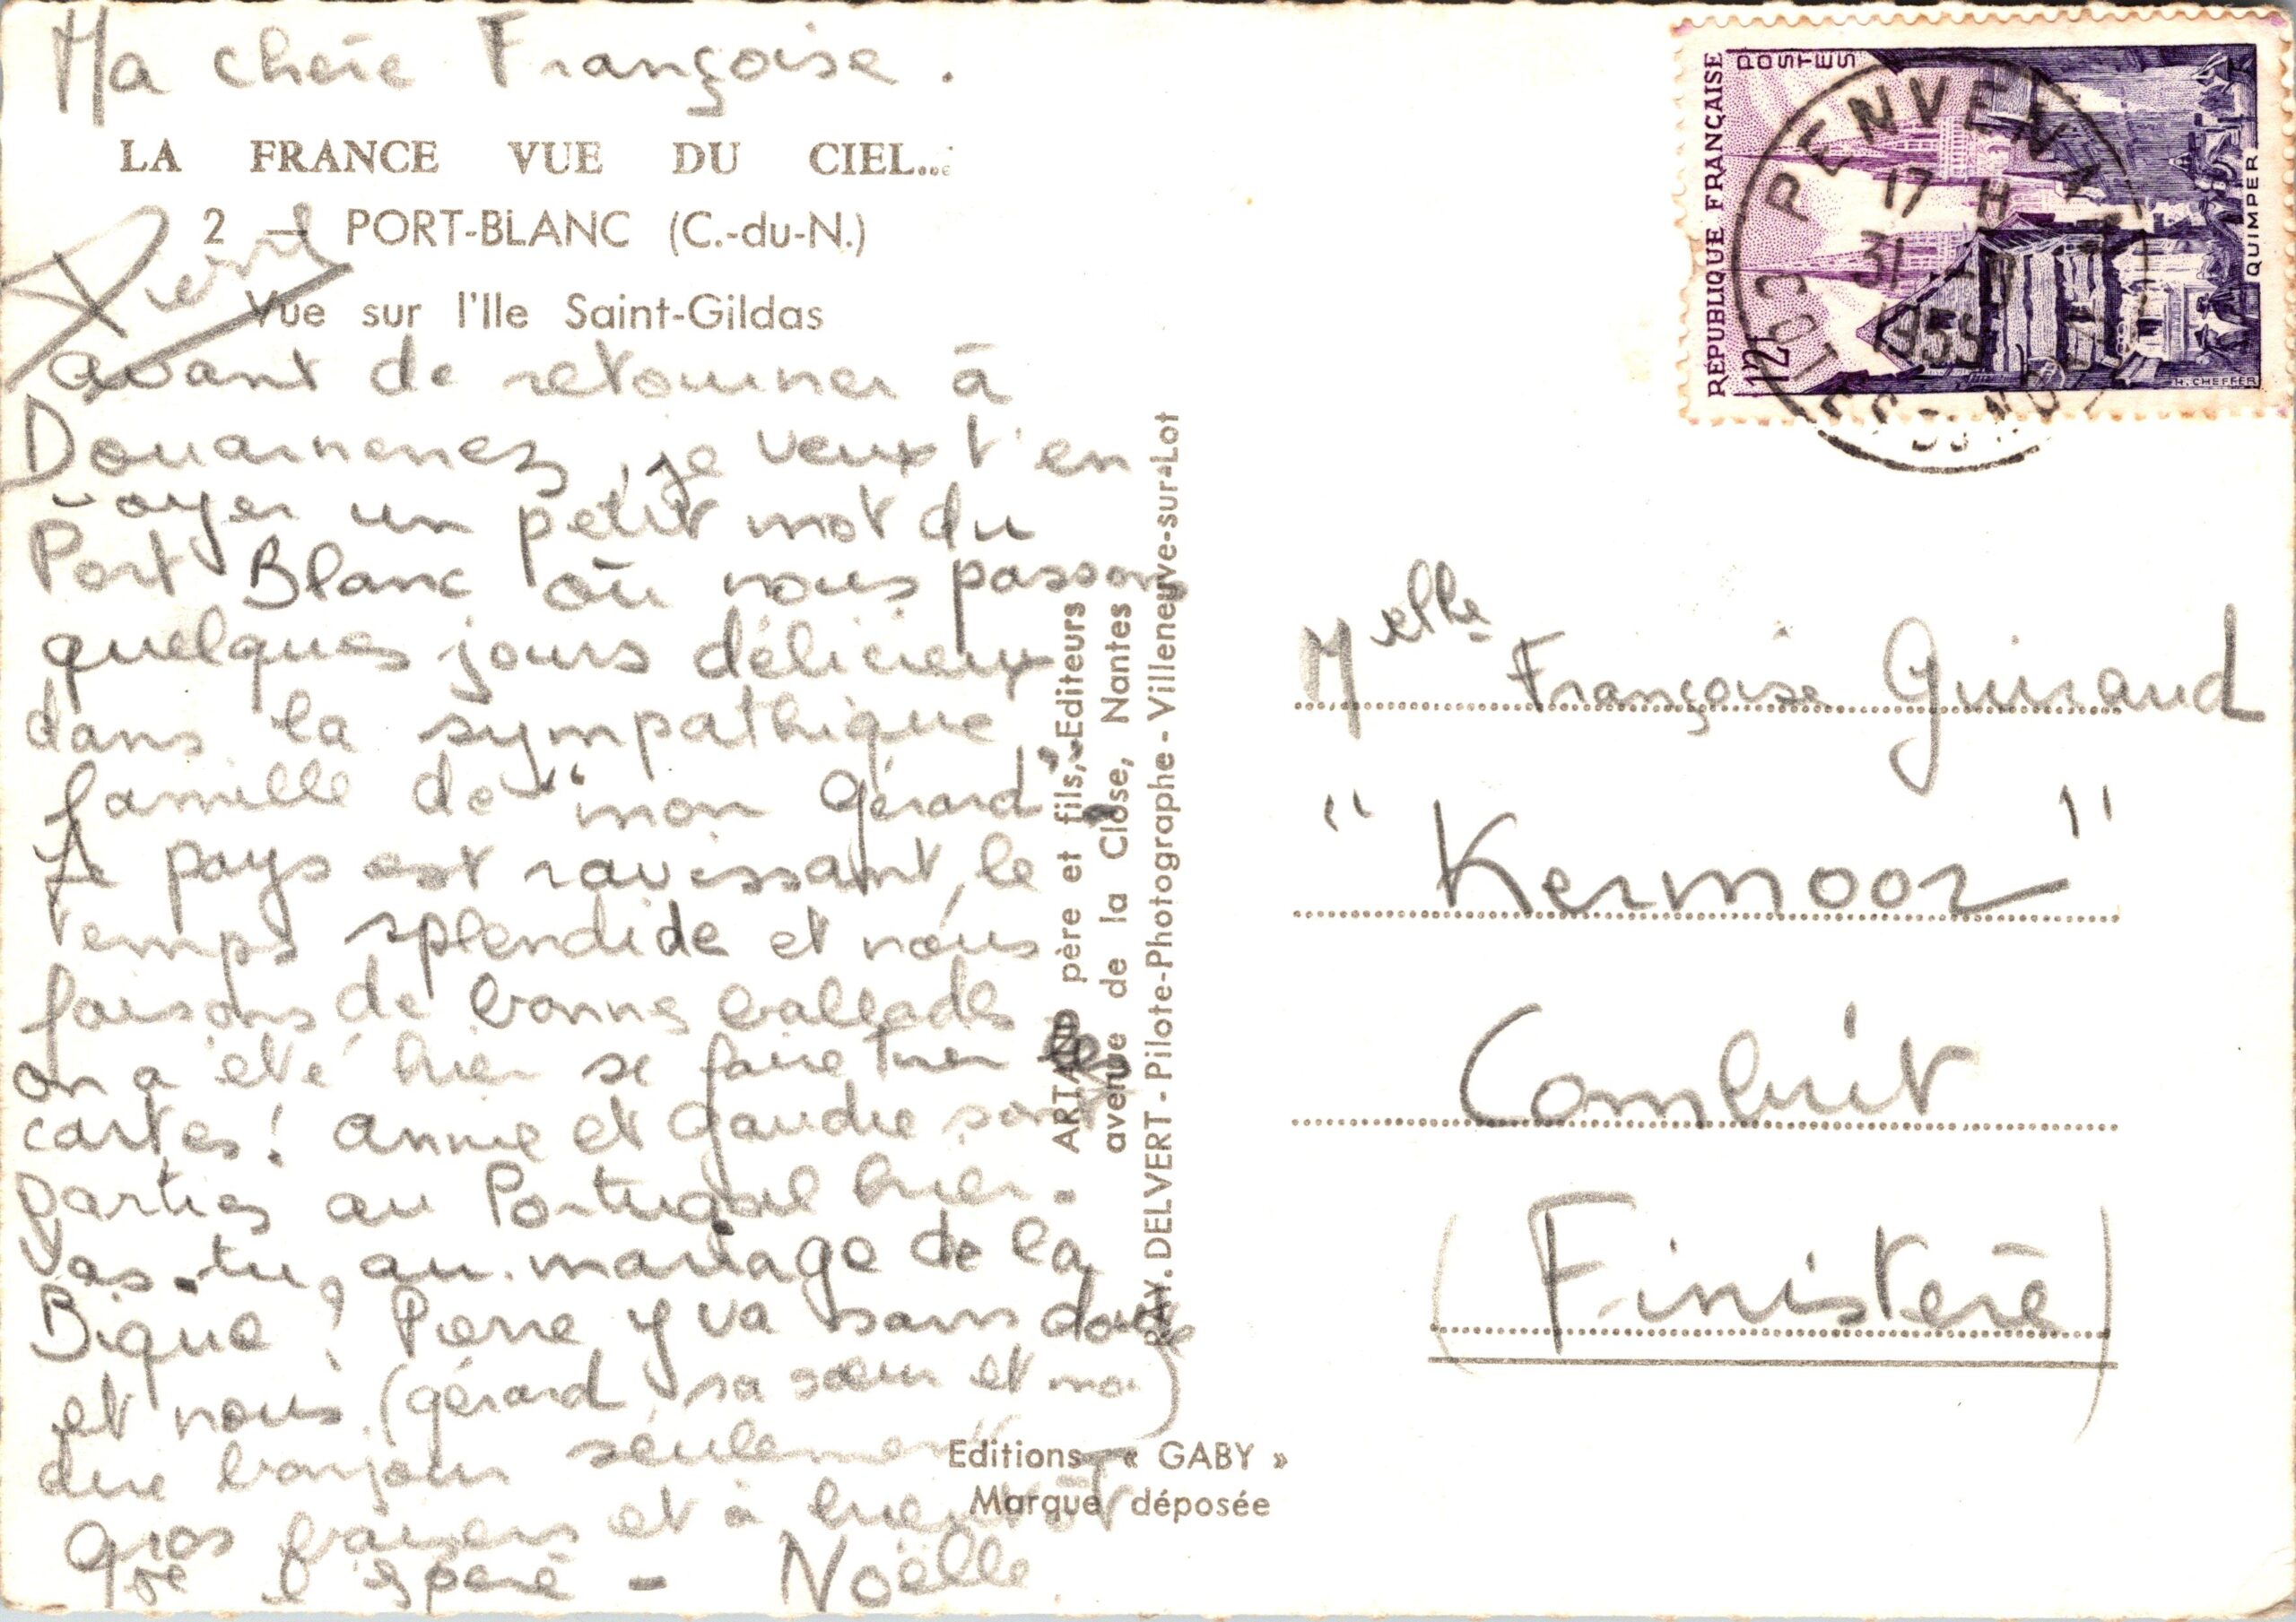 Ma chère Françoise.
LA FRANCE VUE DU CIEL...
2 — PORT-BLANC (C.-du-N.)
Vue sur l'Ile Saint-Gildas
avant de retourner à
Douarnenez, je veux t'en
voyer un petit mot du
Port Blanc où nous passons
quelques jours délicieux
dans la sympathique
famille de "mon Gérard".
Le pays est ravissant, le
temps splendide et nous
faisons de bonnes ballades
on a été hier se faire tirer les
cartes! Annie et Gaudre sont
parties au Portugal hier.
Vas-tu au mariage de la
Bique? Pierre y va sans doute
et nous (gérard, sa sœur et moi)
dire bonjour seulement
Gros baisers et à bientôt
que j'espère - Noëlle
ARTAUD père et fils, Editeurs
avenue de la Close, Nantes
RAY. DELVERT - Pilote-Photographe - Villeneuve-sur-Lot
Editions « GABY »
Marque déposée
REPUBLIQUE FRANÇAISE
POSTES
12F
QUIMPER
H. CHEFFER
PENVENAN
17 H
31 -8
1955
COTES-DU-NORD
Melle Françoise Guiraud
"Kermoor"
Combrit
(Finistère)